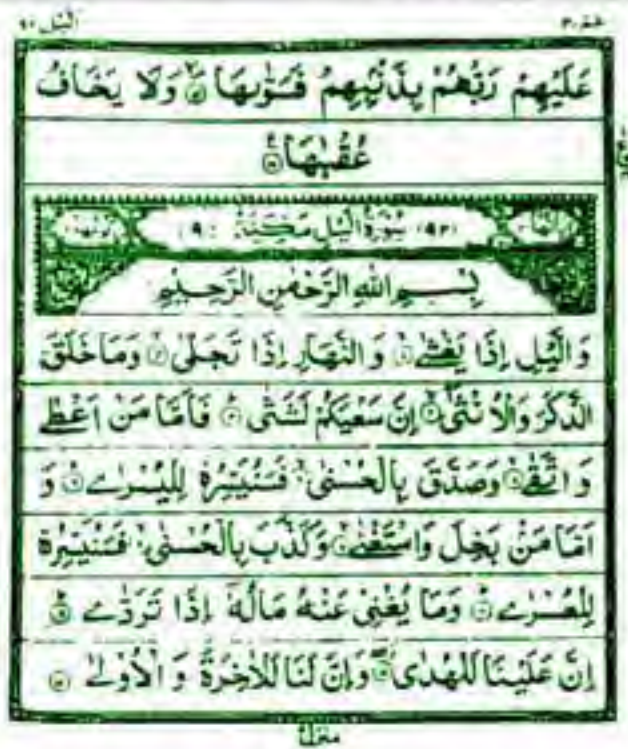 الیل ۹۲
عم ۳۰
عَلَيْهِمْ رَبُّهُمْ بِذَنْۢبِهِمْ فَسَوّٰىهَا ۝ وَلَا يَخَافُ
عُقْبٰهَا ۝
(۹۲) سُوْرَةُ الَّيْلِ مَكِّيَّةٌ (۹)
بِسْمِ اللّٰهِ الرَّحْمٰنِ الرَّحِيْمِ
وَالَّيْلِ اِذَا يَغْشٰى ۝ وَالنَّهَارِ اِذَا تَجَلّٰى ۝ وَمَا خَلَقَ
الذَّكَرَ وَالْاُنْثٰٓى ۝ اِنَّ سَعْيَكُمْ لَشَتّٰى ۝ فَاَمَّا مَنْ اَعْطٰى
وَاتَّقٰى ۝ وَصَدَّقَ بِالْحُسْنٰى ۝ فَسَنُيَسِّرُهٗ لِلْيُسْرٰى ۝ وَ
اَمَّا مَنْۢ بَخِلَ وَاسْتَغْنٰى ۝ وَكَذَّبَ بِالْحُسْنٰى ۝ فَسَنُيَسِّرُهٗ
لِلْعُسْرٰى ۝ وَمَا يُغْنِيْ عَنْهُ مَالُهٗٓ اِذَا تَرَدّٰى ۝
اِنَّ عَلَيْنَا لَلْهُدٰى ۝ وَاِنَّ لَنَا لَلْاٰخِرَةَ وَالْاُوْلٰى ۝